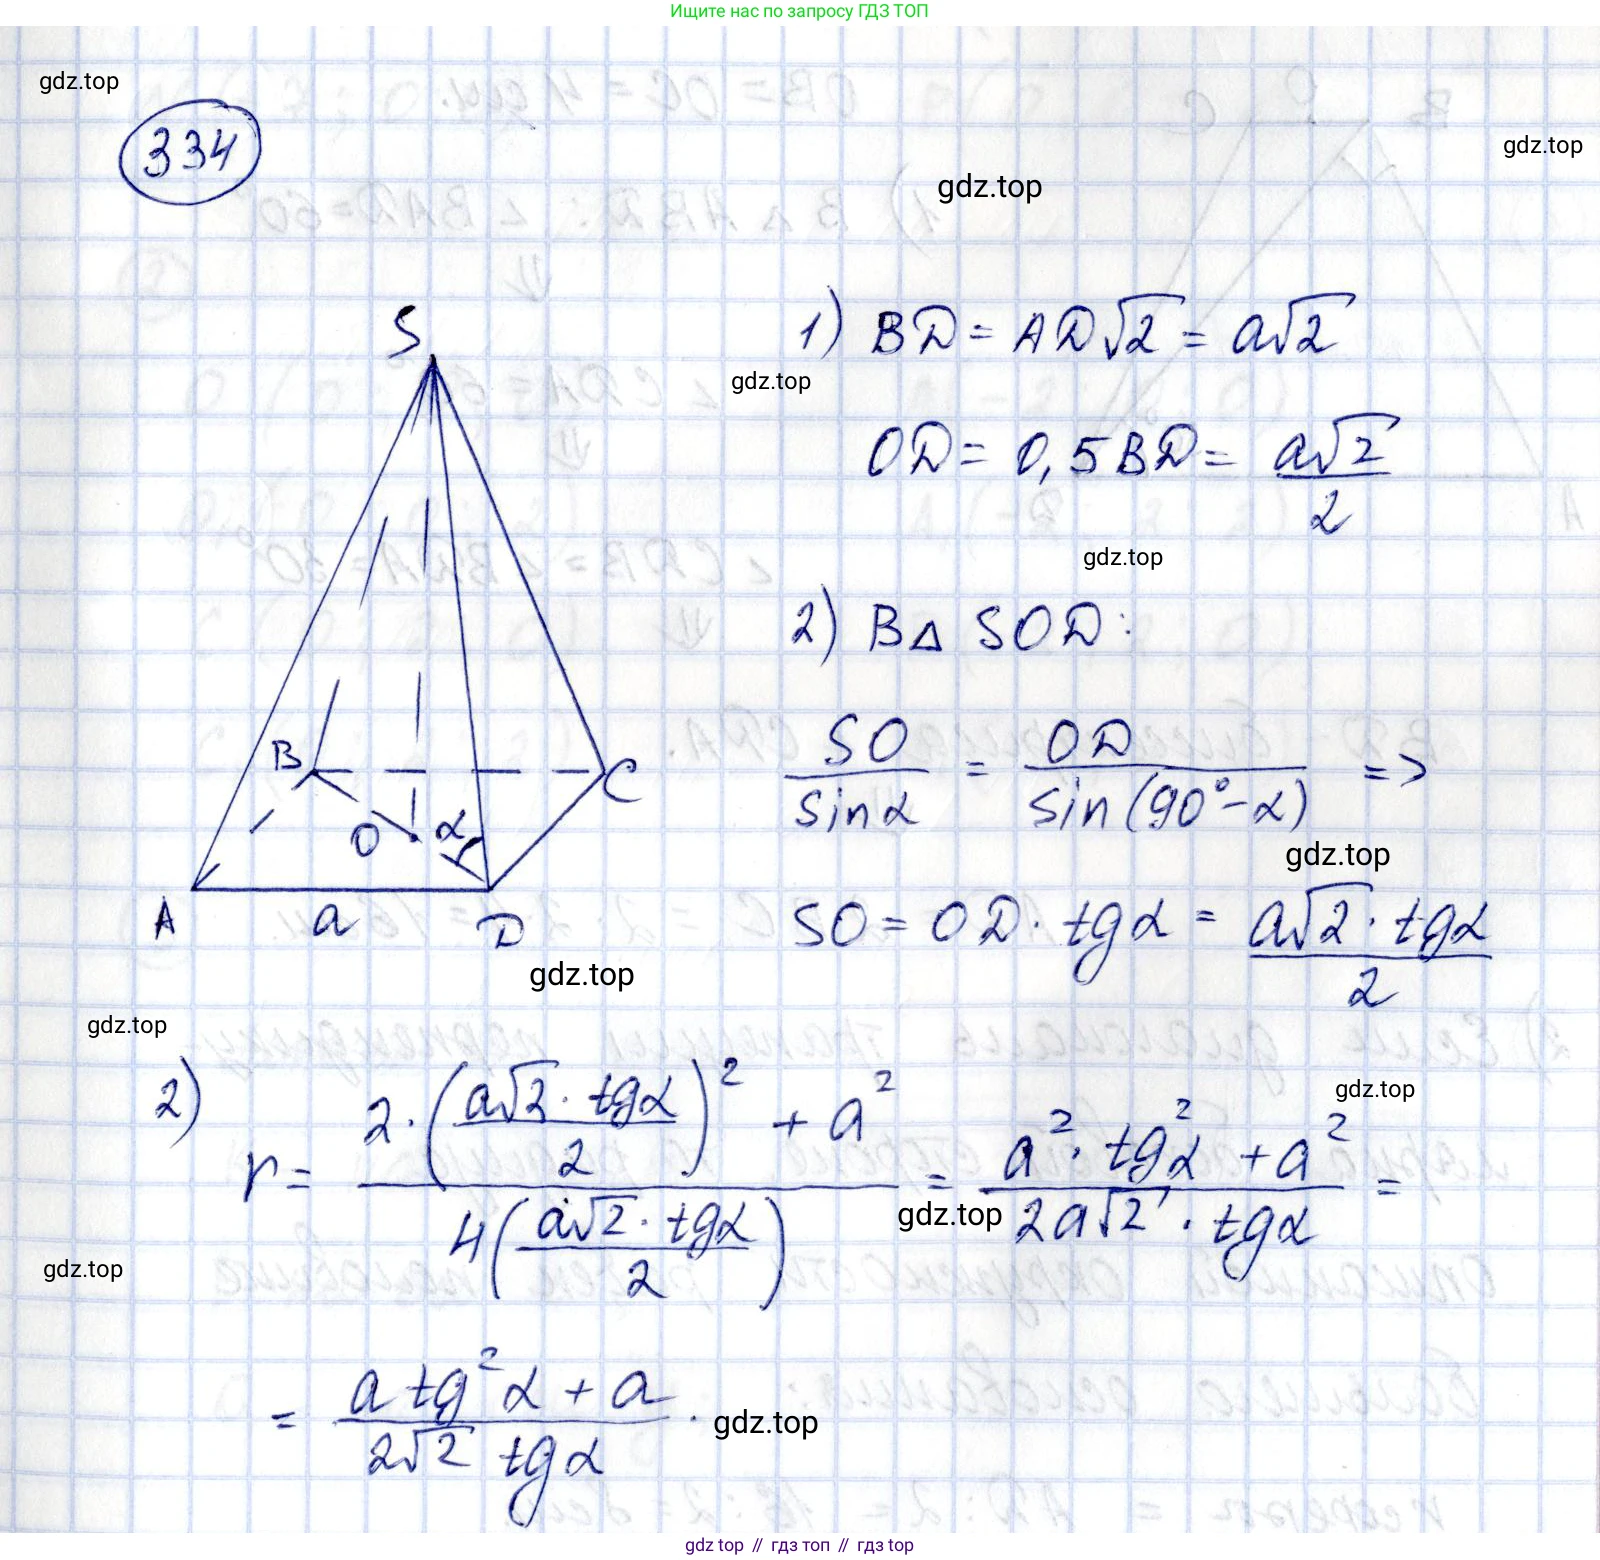 Ищите нас по запросу ГДЗ ТОП
gdz.top
334
gdz.top
gdz.top
S
1) BD = AD√2 = a√2
gdz.top
OD = 0,5BD = a√2/2
gdz.top
2) В △ SOD:
SO/sinα = OD/sin(90°-α) =>
gdz.top
B
C
O
α
A
a
D
SO = OD · tgα = a√2 · tgα/2
gdz.top
gdz.top
gdz.top
2) r = (2·(a√2 · tgα/2)² + a²)/(4(a√2 · tgα/2)) = (a² · tg²α + a²)/(2a√2 · tgα) =
gdz.top
gdz.top
= (a tg²α + a)/(2√2 tgα).
gdz.top
gdz top // гдз топ // гдз top